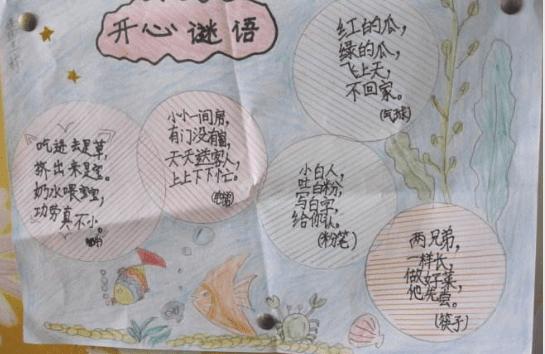 开心谜语
吃进去是草,
挤出来是宝。
奶水喂宝宝,
功劳真不小。
小小一间房,
有门没有窗,
天天送客人,
上上下下忙。
(电梯)
红的瓜,
绿的瓜,
飞上天,
不回家。
(气球)
小白人,
吐白粉,
写白字,
给你认。
(粉笔)
两兄弟,
一样长,
做好菜,
他先尝。
(筷子)